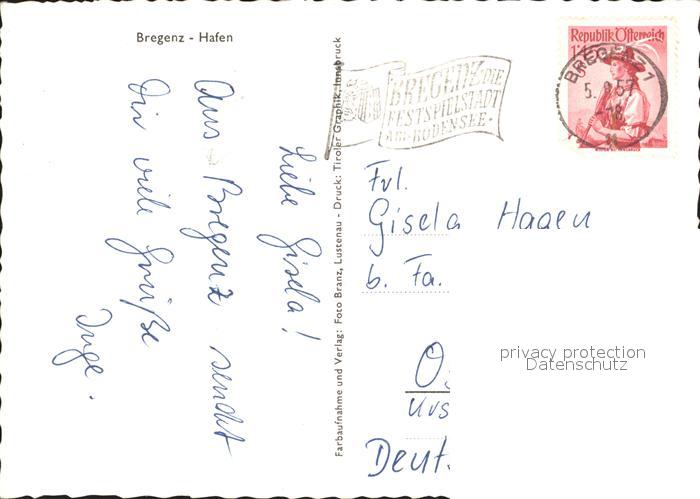 Bregenz - Hafen
Liebe Gisela!
Aus Bregenz sendet
Dir viele Grüße
Inge.
Farbaufnahme und Verlag: Foto Branz, Lustenau - Druck: Tiroler Graphik, Innsbruck
BREGENZ DIE
FESTSPIELSTADT
AM BODENSEE
Republik Österreich
BREGENZ 1
5. 57
-18
Frl.
Gisela Haaen
b. Fa.
O
Urs
Deut
privacy protection
Datenschutz